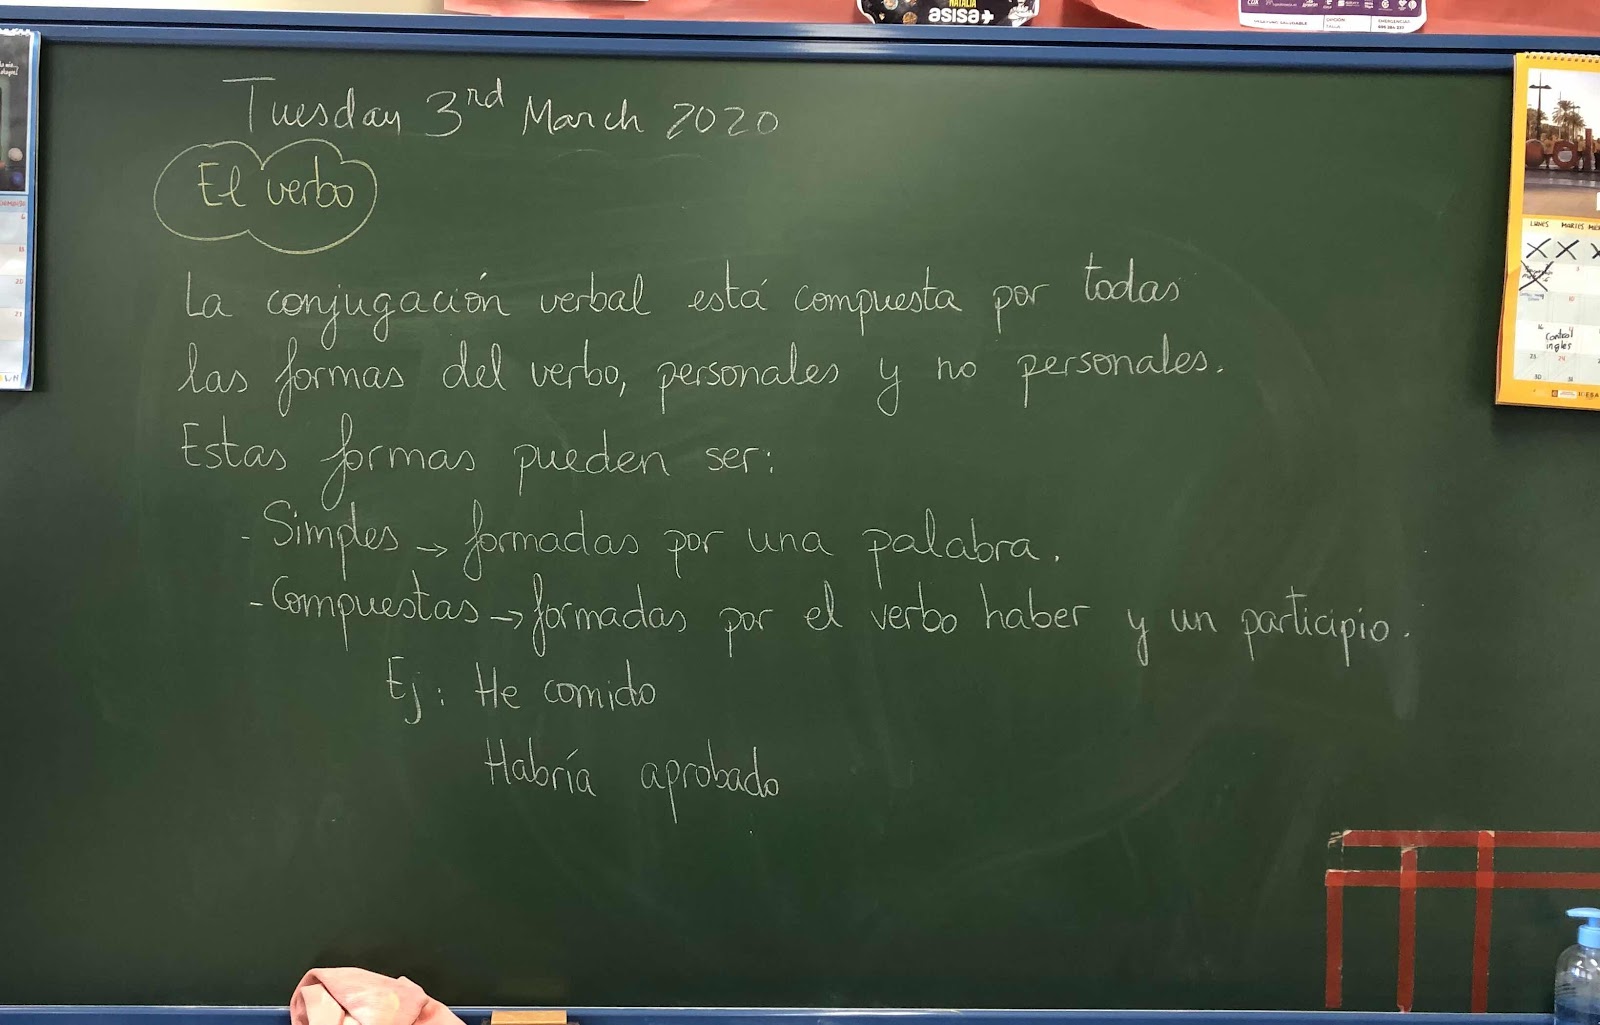 NATALIA
asisa+
Tuesday 3rd March 2020
El verbo
La conjugación verbal está compuesta por todas
las formas del verbo, personales y no personales.
Estas formas pueden ser:
- Simples → formadas por una palabra.
- Compuestas → formadas por el verbo haber y un participio.
Ej: He comido
Habría aprobado
LUNES MARTES
Control
inglés